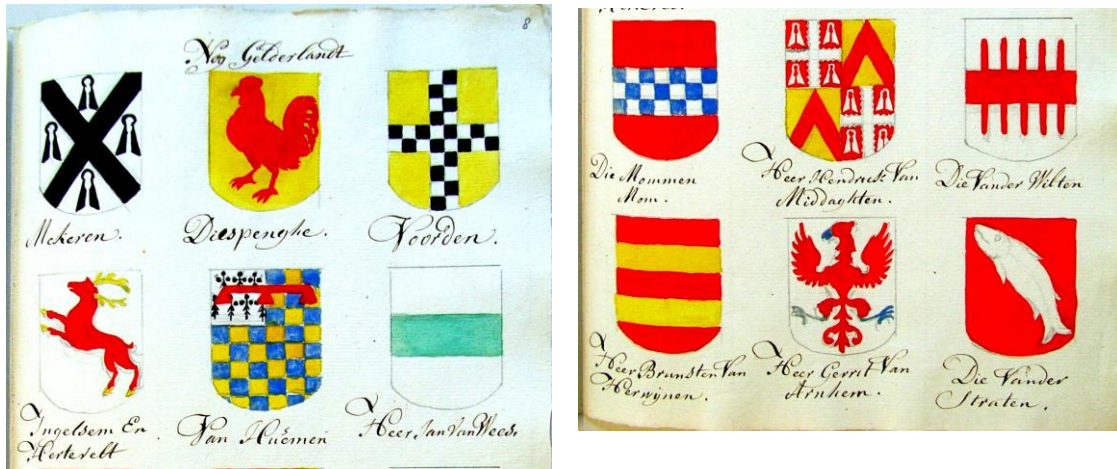 8
Nog Gelderlandt
Mekeren.
Diespenghe.
Voorden.
Ingelsem En
Hertevelt
Van Huemen
Heer Jan Van Wees
Die Mommen
Mom.
Heer Hendrick Van
Middaghten.
Die Vander Wilten
Heer Brunsten Van
Herwijnen.
Heer Gerrit Van
Arnhem.
Die Vander
Straten.